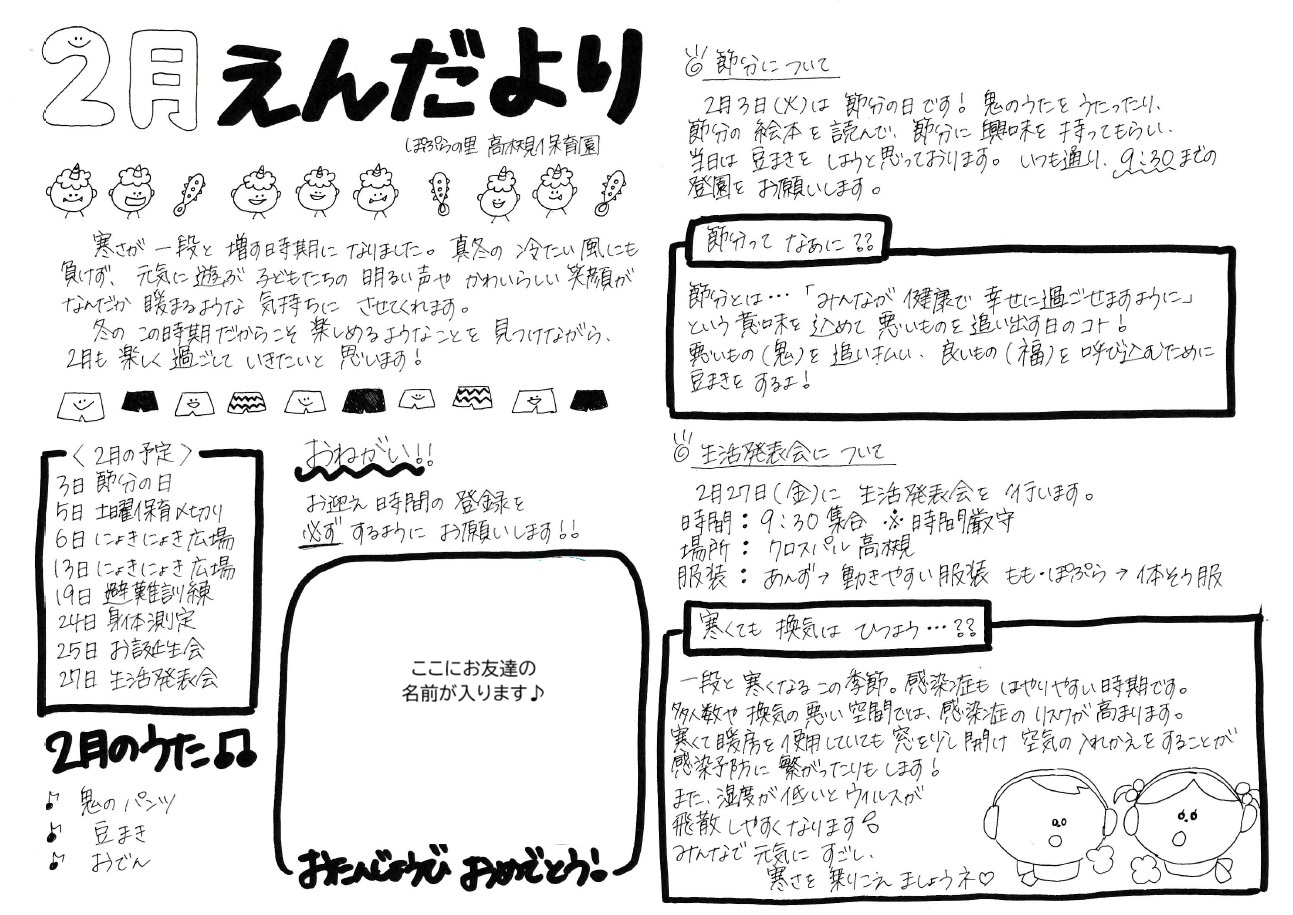 2月えんだより
ぽぷらの里 高槻保育園
寒さが一段と増す時期になりました。真冬の冷たい風にも
負けず、元気に遊ぶ子どもたちの明るい声やかわいらしい笑顔が
なんだか暖まるような気持ちにさせてくれます。
冬のこの時期だからこそ楽しめるようなことを見つけながら、
2月も楽しく過ごしていきたいと思います!
〈2月の予定〉
3日 節分の日
5日 土曜保育〆切り
6日 にょきにょき広場
13日 にょきにょき広場
19日 避難訓練
24日 身体測定
25日 お誕生会
27日 生活発表会
2月のうた♫
♪ 鬼のパンツ
♪ 豆まき
♪ おでん
おねがい!!
お迎え時間の登録を
必ずするようにお願いします!!
ここにお友達の
名前が入ります♪
おたんじょうびおめでとう!
◎節分について
2月3日(火)は節分の日です!鬼のうたをうたったり、
節分の絵本を読んで、節分に興味を持ってもらい、
当日は豆まきをしようと思っております。いつも通り、9:30までの
登園をお願いします。
節分ってなぁに??
節分とは…「みんなが健康で幸せに過ごせますように」
という意味を込めて悪いものを追い出す日のコト!
悪いもの(鬼)を追い払い、良いもの(福)を呼び込むために
豆まきをするよ!
◎生活発表会について
2月27日(金)に生活発表会を行います。
時間:9:30集合 ※時間厳守
場所:クロスパル高槻
服装:あんず→動きやすい服装 もも・ぽぷら→体そう服
寒くても換気はひつよう…??
一段と寒くなるこの季節。感染症もはやりやすい時期です。
多人数や換気の悪い空間では、感染症のリスクが高まります。
寒くて暖房を使用していても窓を少し開け空気の入れかえをすることが
感染予防に繋がったりもします!
また、湿度が低いとウイルスが
飛散しやすくなります
みんなで元気にすごし、
寒さを乗りこえましょうネ♡